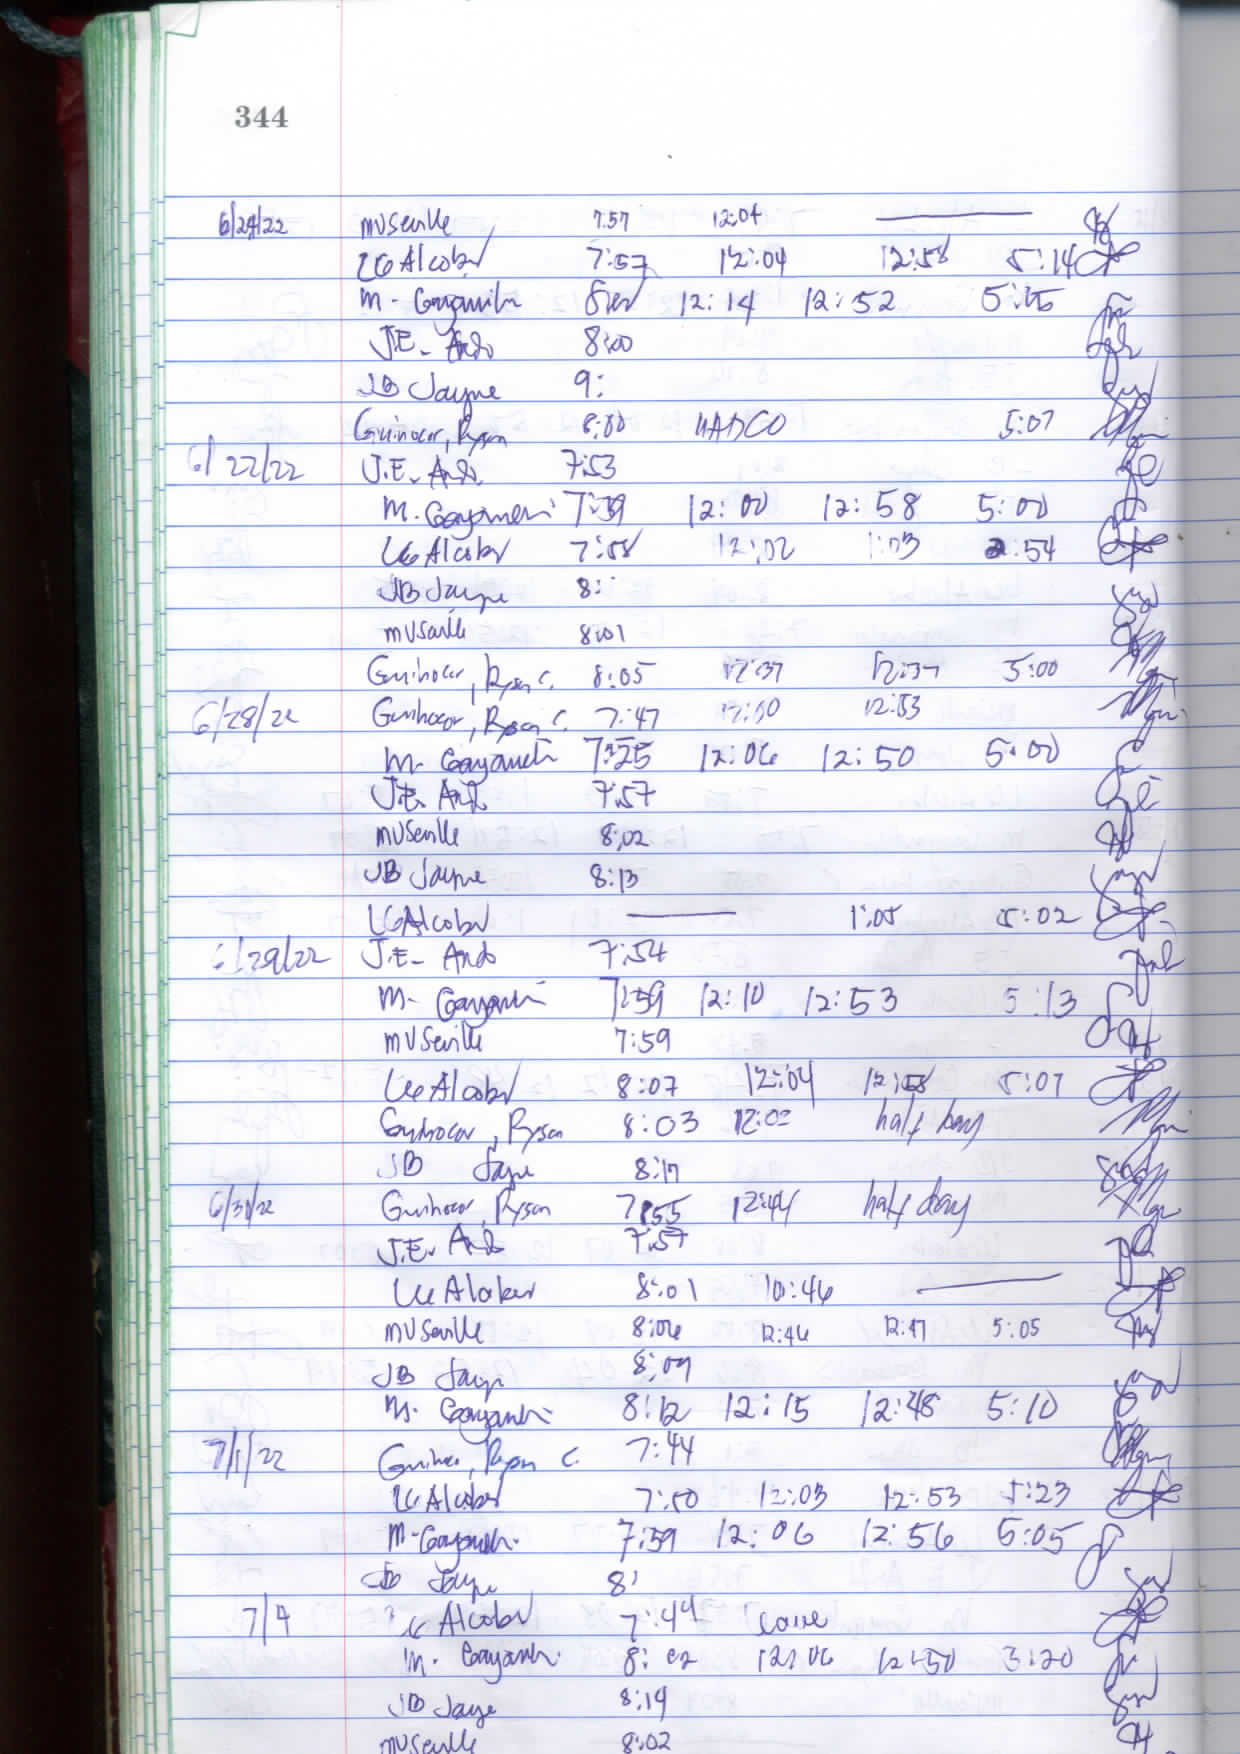 344
6/24/22 MVSeville 7:57 12:04
LG Alcober 7:57 12:04 12:58 5:14
M. 12:14 12:52 5:15
J.E. Ando 8:00
JB Jayme 9:
Guinocor, Ryson 8:00 5:07
6/22/22 J.E. Ando 7:53
M. 7:59 12:00 12:58 5:00
LG Alcober 7:58 12:02 1:03 2:54
JB Jayme 8:
MVSeville 8:01
Guinocor, Ryson C. 8:05 12:37 12:37 5:00
6/28/22 Guinocor, Ryson C. 7:47 12:00 12:53
M. 7:25 12:06 12:50 5:00
J.E. Ando 7:57
MVSeville 8:02
JB Jayme 8:13
LG Alcober 1:05 5:02
6/29/22 J.E. Ando 7:54
M. 7:59 12:10 12:53 5:13
MVSeville 7:59
LG Alcober 8:07 12:04 12:58 5:07
Guinocor, Ryson 8:03 12:02 half day
JB Jayme 8:17
6/30/22 Guinocor, Ryson 7:55 12:44 half day
J.E. Ando 7:57
LG Alcober 8:01 10:46
MVSeville 8:06 12:46 12:47 5:05
JB Jayme 8:09
M. 8:12 12:15 12:48 5:10
7/1/22 Guinocor, Ryson C. 7:44
LG Alcober 7:50 12:03 12:53 5:23
M. 7:59 12:06 12:56 5:05
JB Jayme 8:
7/4 LG Alcober 7:44 leave
M. 8:02 12:06 12:50 3:20
JB Jayme 8:19
MVSeville 8:02